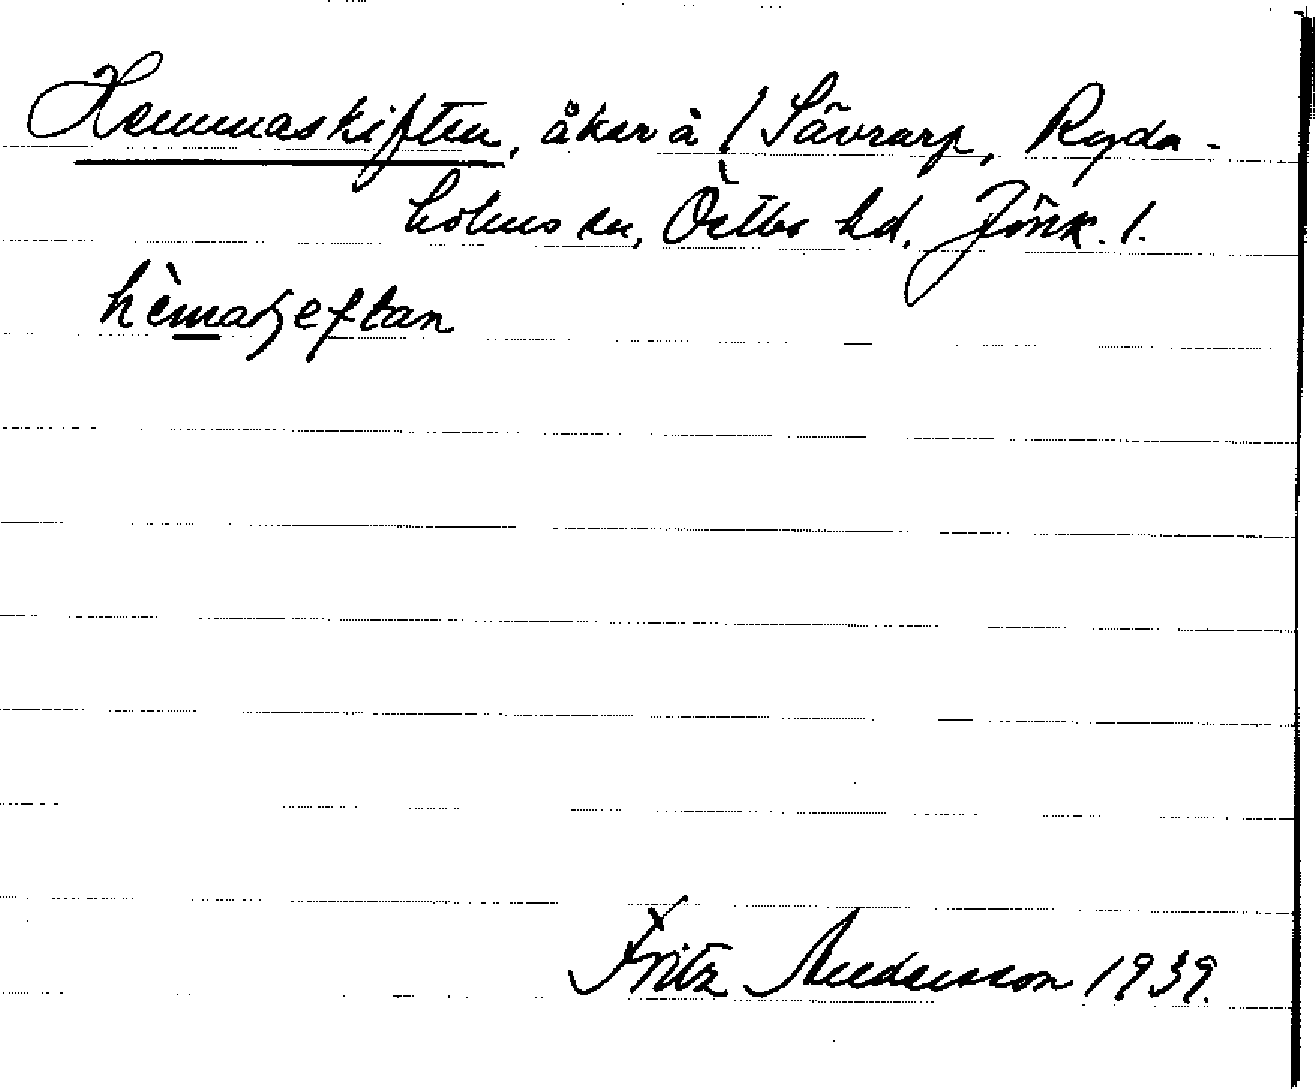 Hemmaskiften, åker å Sävrarp, Ryda-
holms sn, Östbo hd, Jönk. l.
hèmaʃeftan
Fritz Andersson 1939.